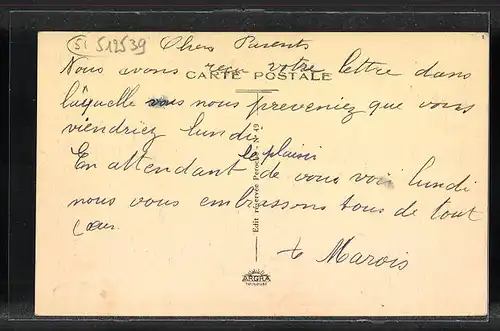 51 512539
Chers Parents
Nous avons reçu votre lettre dans
CARTE POSTALE
laquelle vous nous preveniez que vous
viendriez lundi.
le plaisir
En attendant de vous voir lundi
nous vous embrassons tous de tout
cœur.
Marois
Edit réservée 49
ARGRA